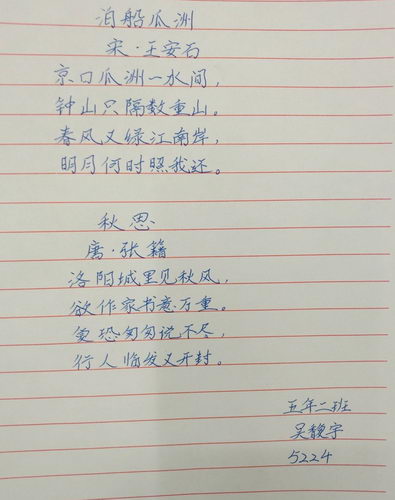 泊船瓜洲
宋·王安石
京口瓜洲一水间，
钟山只隔数重山。
春风又绿江南岸，
明月何时照我还。
秋思
唐·张籍
洛阳城里见秋风，
欲作家书意万重。
复恐匆匆说不尽，
行人临发又开封。
五年二班
吴馥宇
5224